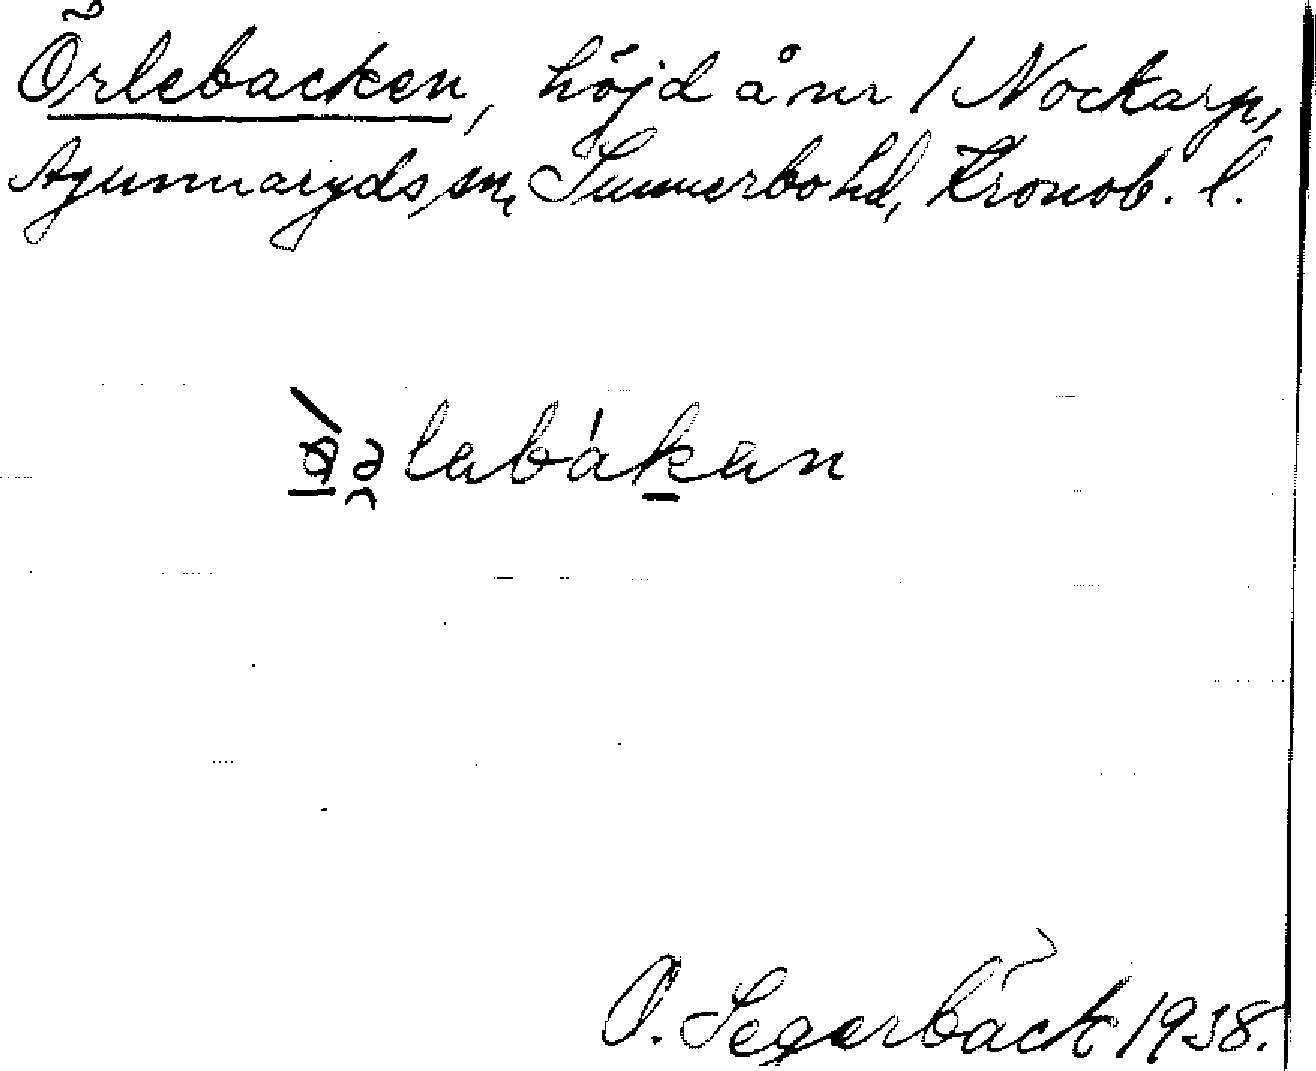 Örlebacken, höjd å nr 1 Nockarp,
Agunnaryds sn, Sunnerbo hd, Kronob. l.
labákan
O. Segerbäck 1938.